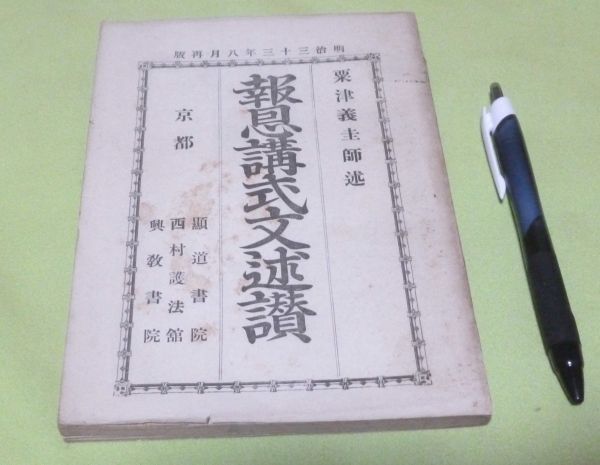 明治三十三年八月再版
粟津義圭師述
報恩講式文述讃
京都
顯道書院
西村護法舘
興教書院